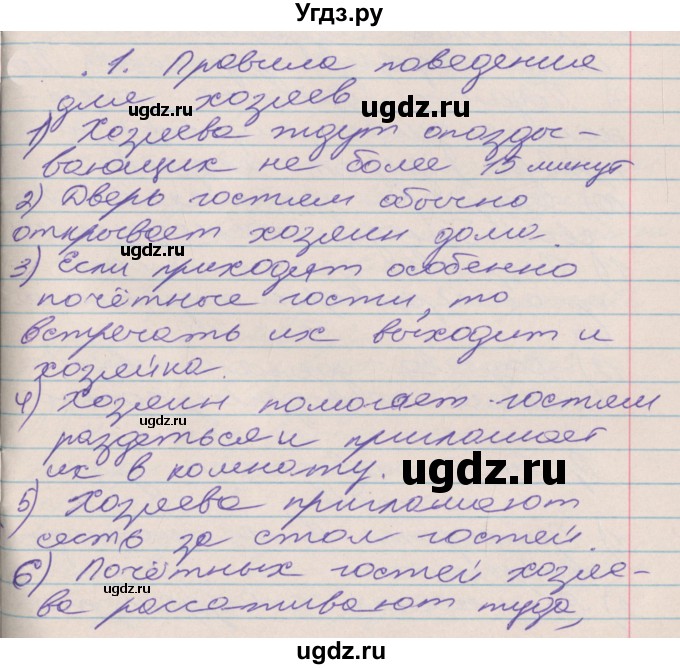 Угдз.ру
. 1. Правила поведения
для хозяев
1) Хозяева ждут опазды-
вающих не более 15 минут
2) Дверь гостям обычно
открывает хозяин дома.
3) Если приходят особенно
почётные гости, то
встречать их выходит и
хозяйка.
4) Хозяин помогает гостям
раздеться и приглашает
их в комнату.
5) Хозяева приглашают
сесть за стол гостей.
6) Почётных гостей хозяе-
ва рассаживают туда,
ugdz.ru
ugdz.ru
ugdz.ru
ugdz.ru
ugdz.ru
ugdz.ru
ugdz.ru
ugdz.ru
Угдз.ру